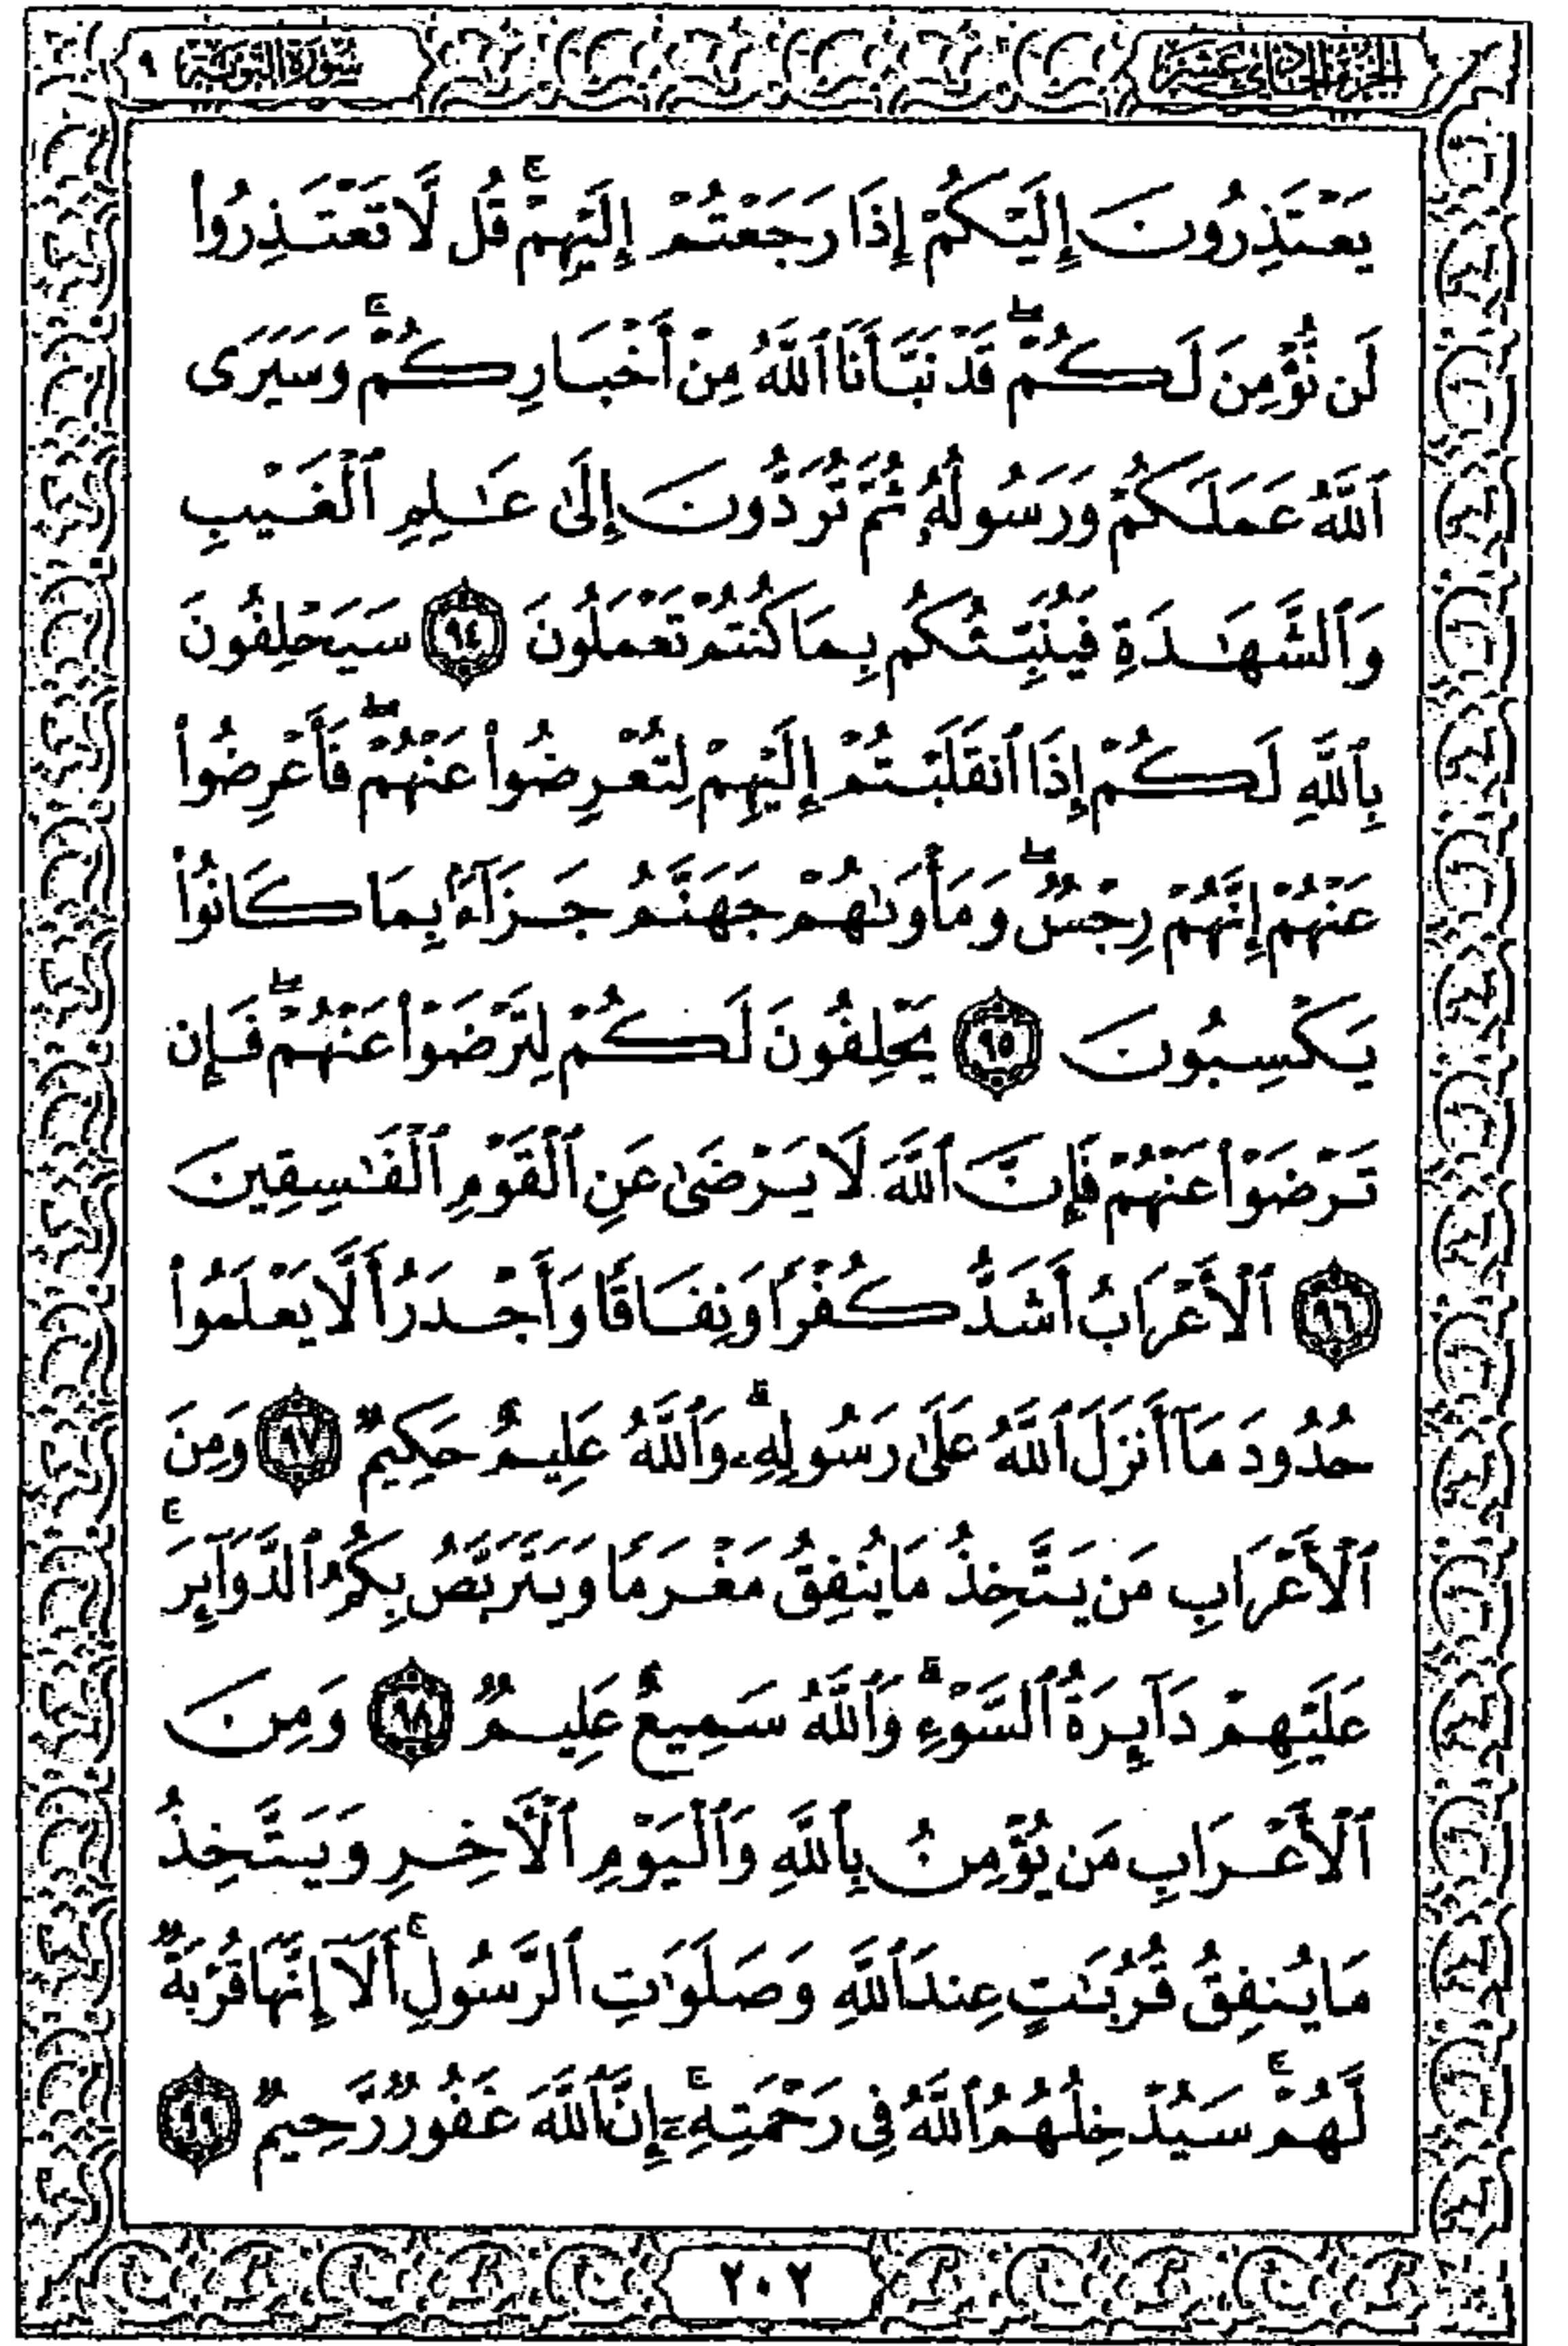 الجزء الحادي عشر
سورة التوبة ٩
يَعْتَذِرُونَ إِلَيْكُمْ إِذَا رَجَعْتُمْ إِلَيْهِمْ ۚ قُل لَّا تَعْتَذِرُوا۟
لَن نُّؤْمِنَ لَكُمْ ۖ قَدْ نَبَّأَنَا ٱللَّهُ مِنْ أَخْبَارِكُمْ ۚ وَسَيَرَى
ٱللَّهُ عَمَلَكُمْ وَرَسُولُهُۥ ثُمَّ تُرَدُّونَ إِلَىٰ عَـٰلِمِ ٱلْغَيْبِ
وَٱلشَّهَـٰدَةِ فَيُنَبِّئُكُم بِمَا كُنتُمْ تَعْمَلُونَ ٩٤ سَيَحْلِفُونَ
بِٱللَّهِ لَكُمْ إِذَا ٱنقَلَبْتُمْ إِلَيْهِمْ لِتُعْرِضُوا۟ عَنْهُمْ ۖ فَأَعْرِضُوا۟
عَنْهُمْ إِنَّهُمْ رِجْسٌ ۖ وَمَأْوَىٰهُمْ جَهَنَّمُ جَزَآءًۢ بِمَا كَانُوا۟
يَكْسِبُونَ ٩٥ يَحْلِفُونَ لَكُمْ لِتَرْضَوْا۟ عَنْهُمْ ۖ فَإِن
تَرْضَوْا۟ عَنْهُمْ فَإِنَّ ٱللَّهَ لَا يَرْضَىٰ عَنِ ٱلْقَوْمِ ٱلْفَـٰسِقِينَ
٩٦ ٱلْأَعْرَابُ أَشَدُّ كُفْرًا وَنِفَاقًا وَأَجْدَرُ أَلَّا يَعْلَمُوا۟
حُدُودَ مَآ أَنزَلَ ٱللَّهُ عَلَىٰ رَسُولِهِۦ ۗ وَٱللَّهُ عَلِيمٌ حَكِيمٌ ٩٧ وَمِنَ
ٱلْأَعْرَابِ مَن يَتَّخِذُ مَا يُنفِقُ مَغْرَمًا وَيَتَرَبَّصُ بِكُمُ ٱلدَّوَآئِرَ ۚ
عَلَيْهِمْ دَآئِرَةُ ٱلسَّوْءِ ۗ وَٱللَّهُ سَمِيعٌ عَلِيمٌ ٩٨ وَمِنَ
ٱلْأَعْرَابِ مَن يُؤْمِنُ بِٱللَّهِ وَٱلْيَوْمِ ٱلْـَٔاخِرِ وَيَتَّخِذُ
مَا يُنفِقُ قُرُبَـٰتٍ عِندَ ٱللَّهِ وَصَلَوَٰتِ ٱلرَّسُولِ ۚ أَلَآ إِنَّهَا قُرْبَةٌ
لَّهُمْ ۚ سَيُدْخِلُهُمُ ٱللَّهُ فِى رَحْمَتِهِۦٓ ۚ إِنَّ ٱللَّهَ غَفُورٌ رَّحِيمٌ ٩٩
٢٠٢